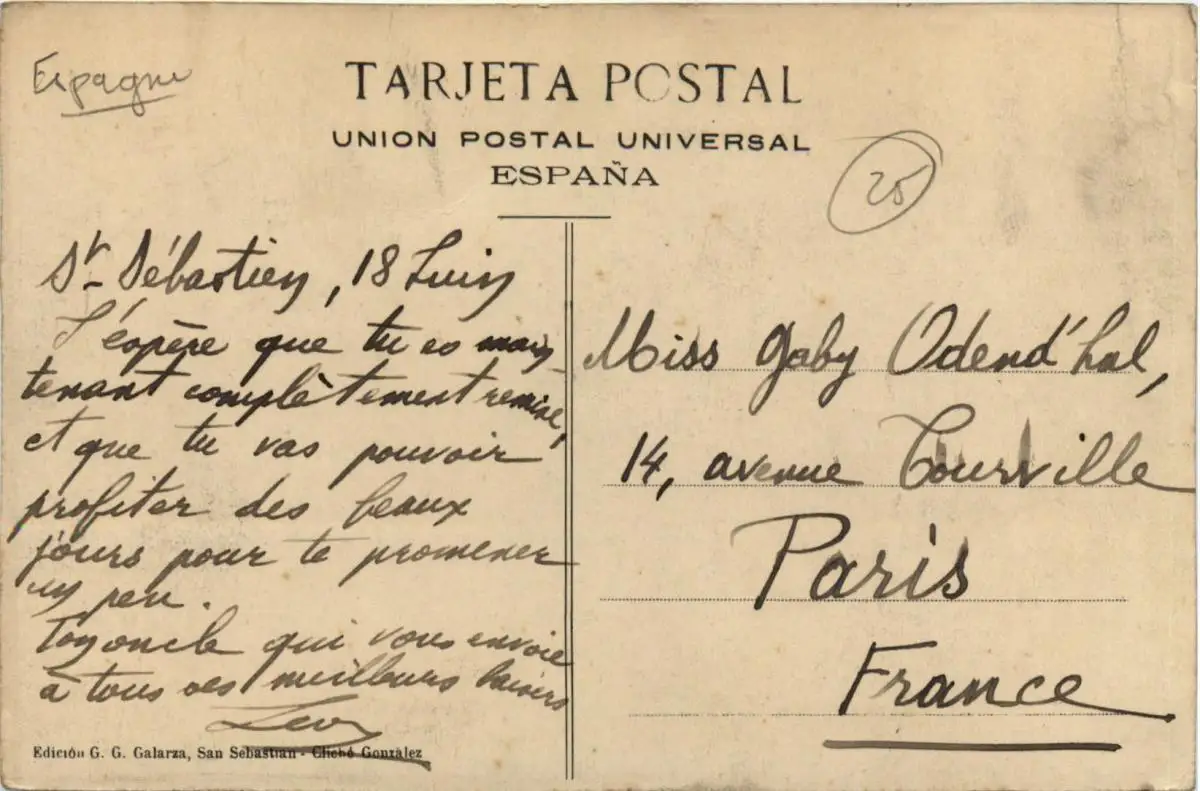 Espagne
TARJETA POSTAL
UNION POSTAL UNIVERSAL
ESPAÑA
25
St Sébastien, 18 Juin
J'espère que tu es main-
tenant complètement remise,
et que tu vas pouvoir
profiter des beaux
jours pour te promener
un peu.
Ton oncle qui vous envoie
à tous ses meilleurs baisers
Léon
Miss Gaby Odend'hal,
14, avenue Tourville
Paris
France
Edición G. G. Galarza, San Sebastian - Cliché González